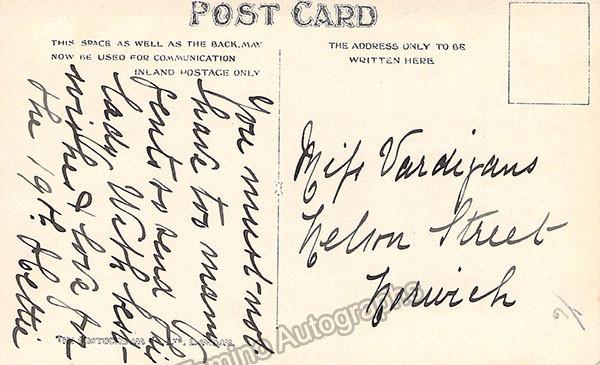 POST CARD
THIS SPACE AS WELL AS THE BACK, MAY
NOW BE USED FOR COMMUNICATION
INLAND POSTAGE ONLY
THE ADDRESS ONLY TO BE
WRITTEN HERE
You must not
have too many
sent so send this
lady With best
wishes & love for
the 19th Hettie
Miss Vardigans
Nelson Street
Norwich
Tamino Autographs